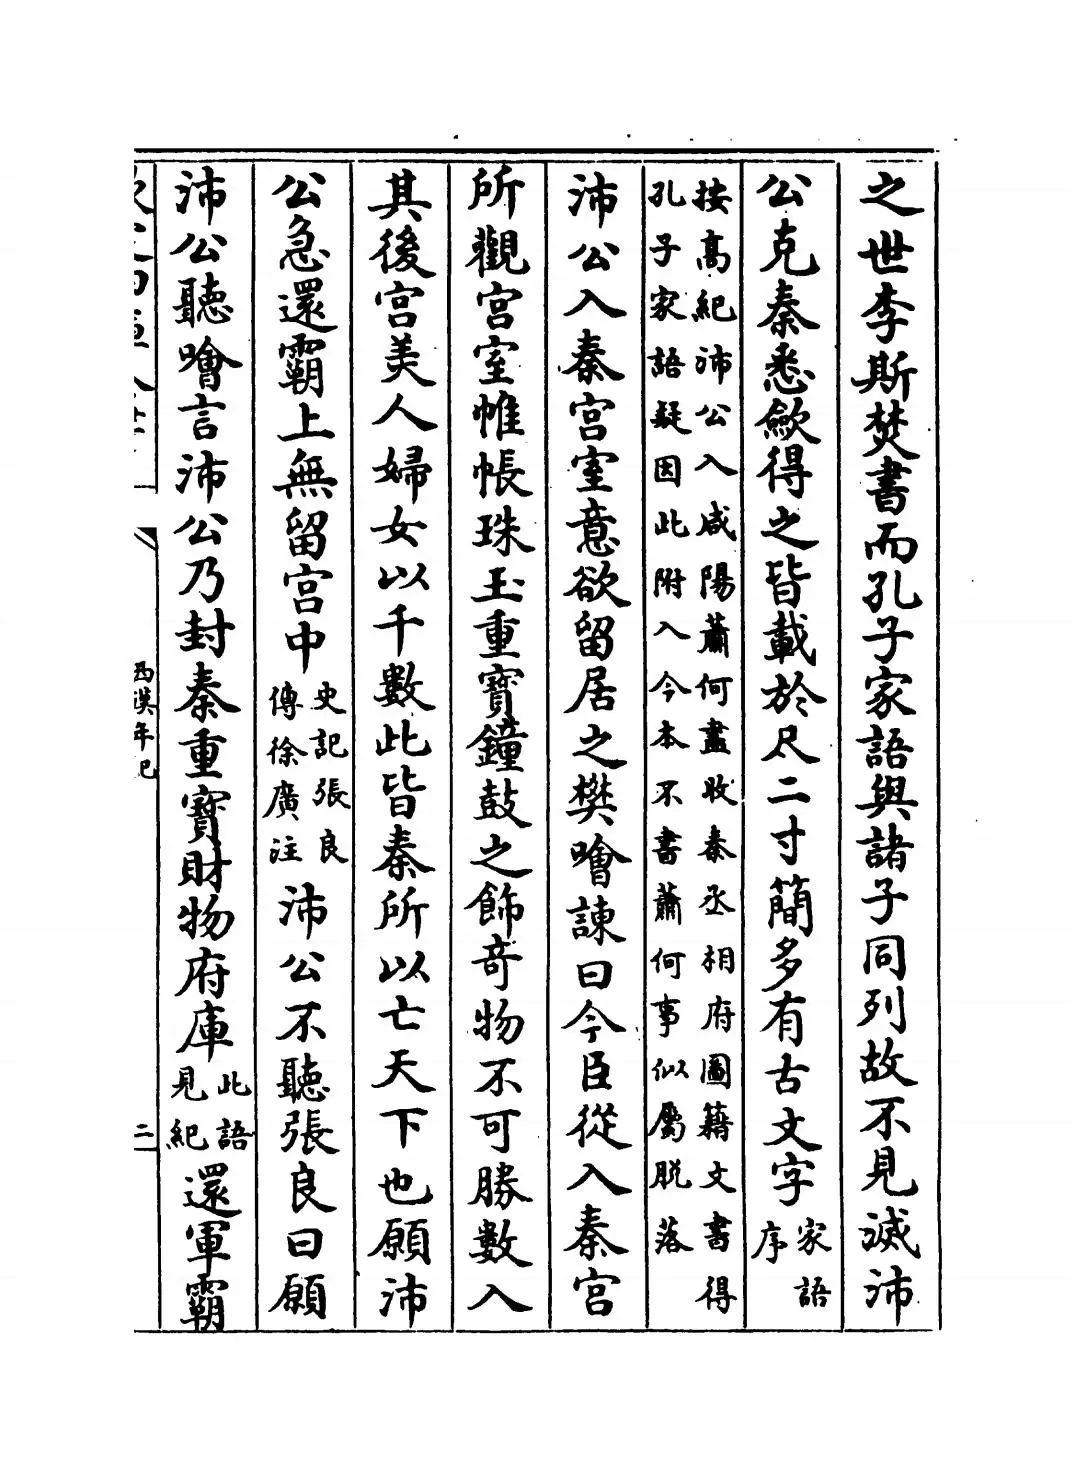 之世李斯焚書而孔子家語與諸子同列故不見滅沛
公克秦悉歛得之皆載於尺二寸簡多有古文字家語序
按髙紀沛公入咸陽蕭何盡收秦丞相府圖籍文書得
孔子家語疑因此附入今本不書蕭何事似屬脱落
沛公入秦宫室意欲留居之樊噲諫曰今臣從入秦宫
所觀宫室帷帳珠玉重寳鐘鼓之飾竒物不可勝數入
其後宫美人婦女以千數此皆秦所以亡天下也願沛
公急還霸上無留宫中史記張良傳徐廣注沛公不聽張良曰願
沛公聽噲言沛公乃封秦重寳財物府庫此語見紀還軍霸
西漢年紀
二